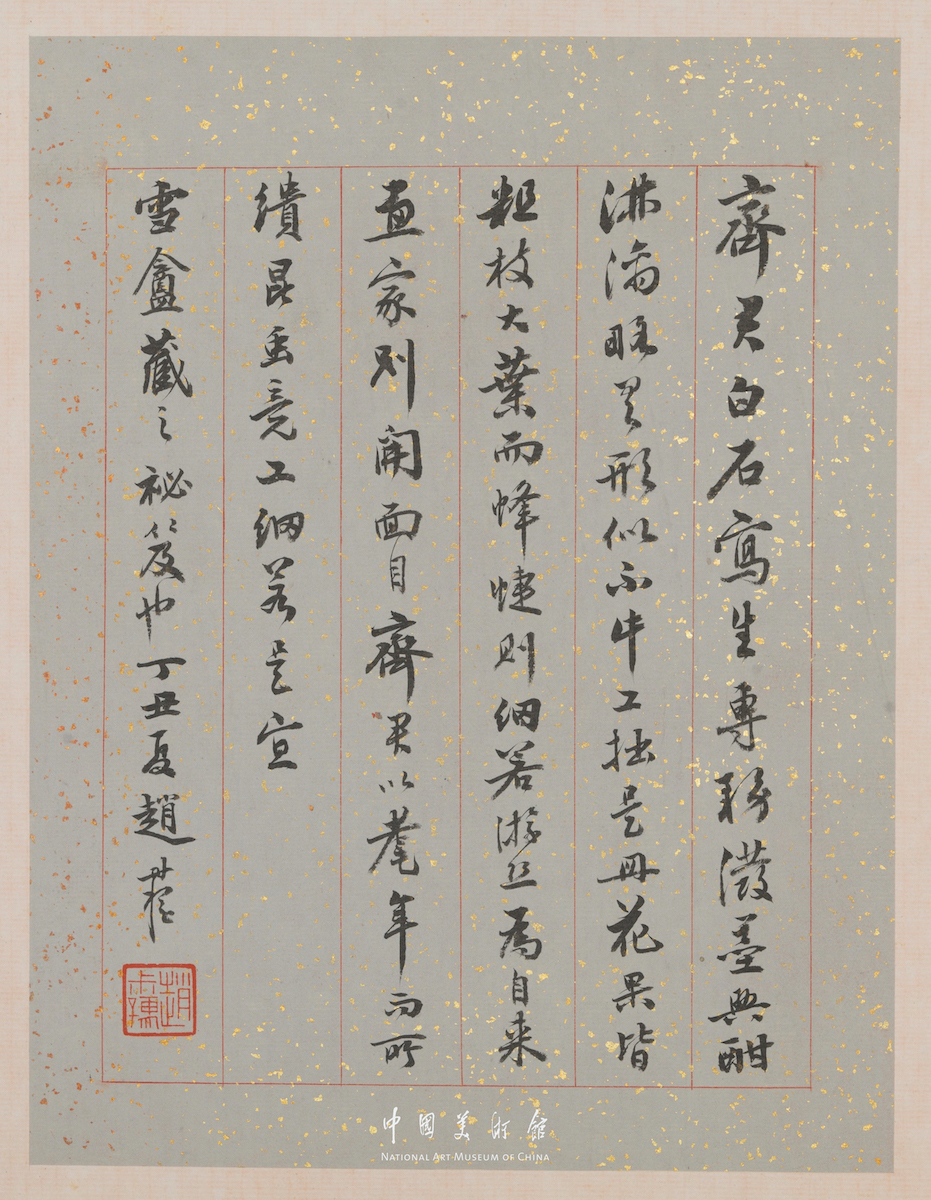 齊君白石寫生專務潑墨興酣
淋漓略具形似不計工拙是冊花果皆
粗枝大葉而蜂蜨則細若游丝為自来
畫家別開面目齊君以耄年而所
繢昆虫竟工細若是宣
雪盦藏之祕笈也丁丑夏趙叔孺
趙叔孺
中國美術館
NATIONAL ART MUSEUM OF CHINA